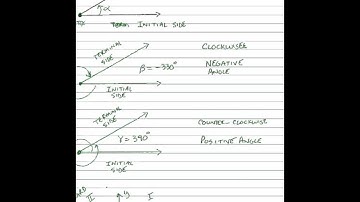 α
INITIAL SIDE
TERMINAL SIDE
CLOCKWISE
β = -330°
NEGATIVE
ANGLE
INITIAL
SIDE
TERMINAL
SIDE
COUNTER-CLOCKWISE
γ = 390°
POSITIVE ANGLE
INITIAL
SIDE
II
y
I